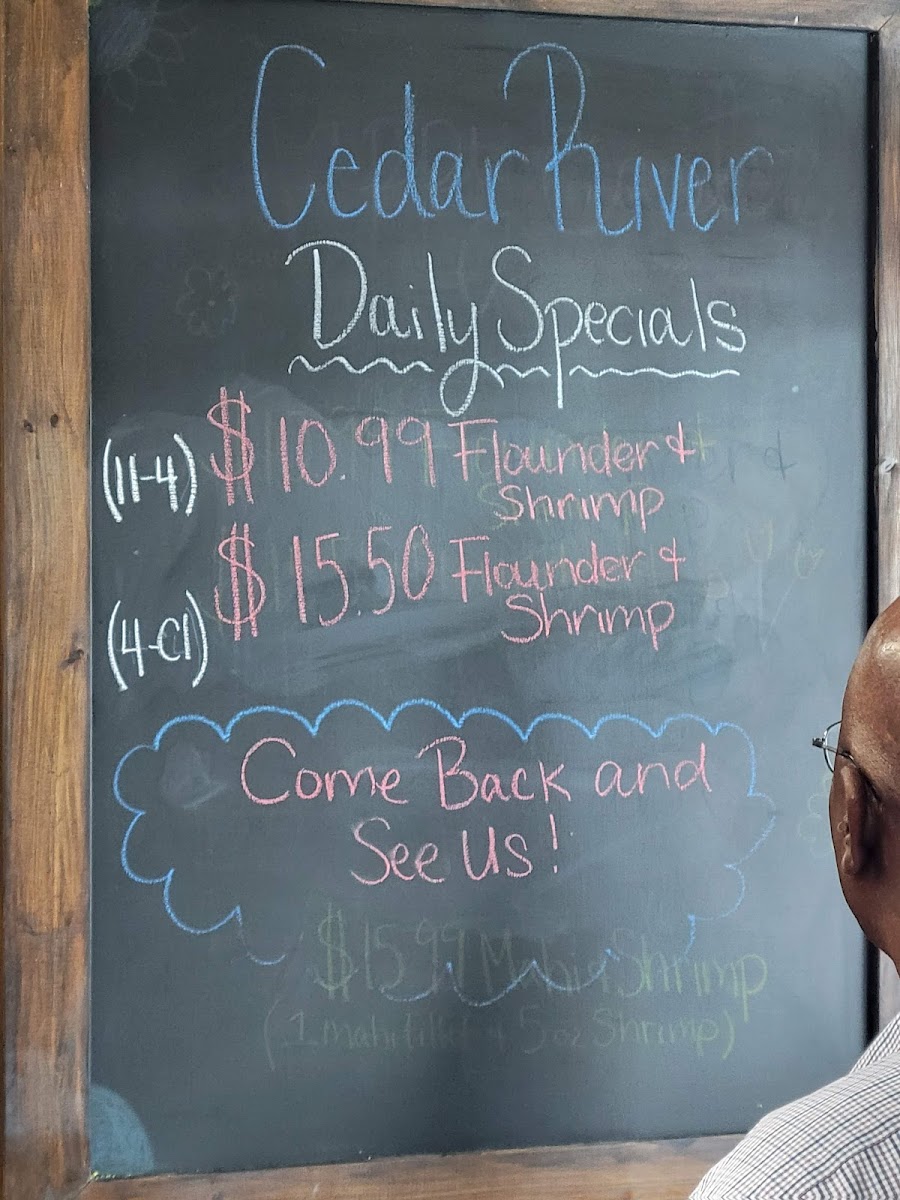 Cedar River
Daily Specials
(11-4) $10.99 Flounder &
Shrimp
(4-Cl) $15.50 Flounder &
Shrimp
Come Back and
See Us!
$15.99 Mahi Shrimp
(1 mahi fillet + 5 oz Shrimp)